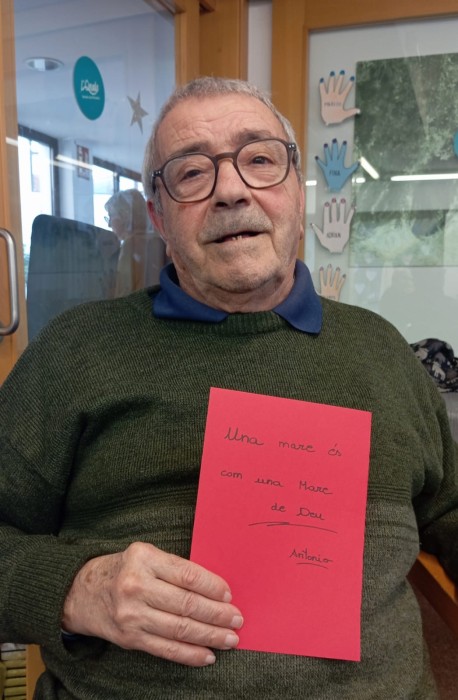 Una mare és
com una Mare
de Deu
Antonio